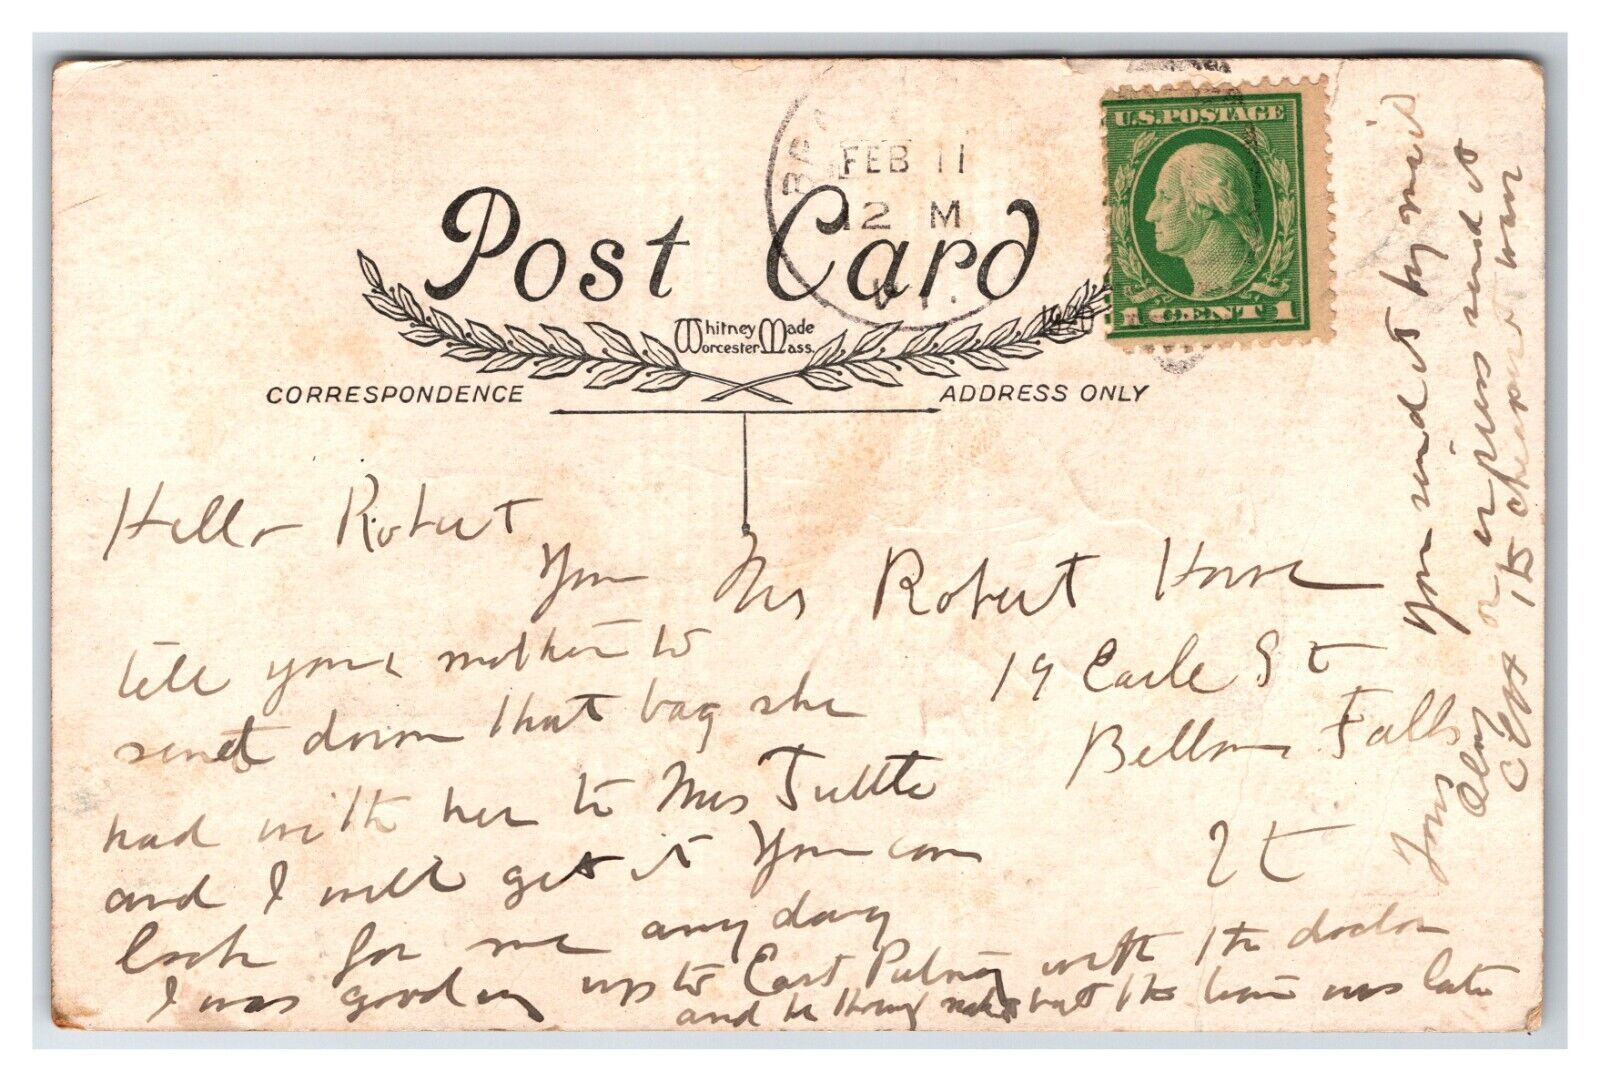 U.S. POSTAGE
1 CENT 1
FEB 11
12 M
VT.
1920
Post Card
Whitney Made
Worcester Mass.
CORRESPONDENCE
ADDRESS ONLY
Hello Robert
You
tell your mother to
send down that bag she
had with her to Mrs Tuttle
and I will get it You can
look for me any day
I was going up to East Putney with the doctor
and he but the train was late
Robert Howe
19 Earle St
Bellows Falls
Vt
You send it by mail
or express send it
cheaper